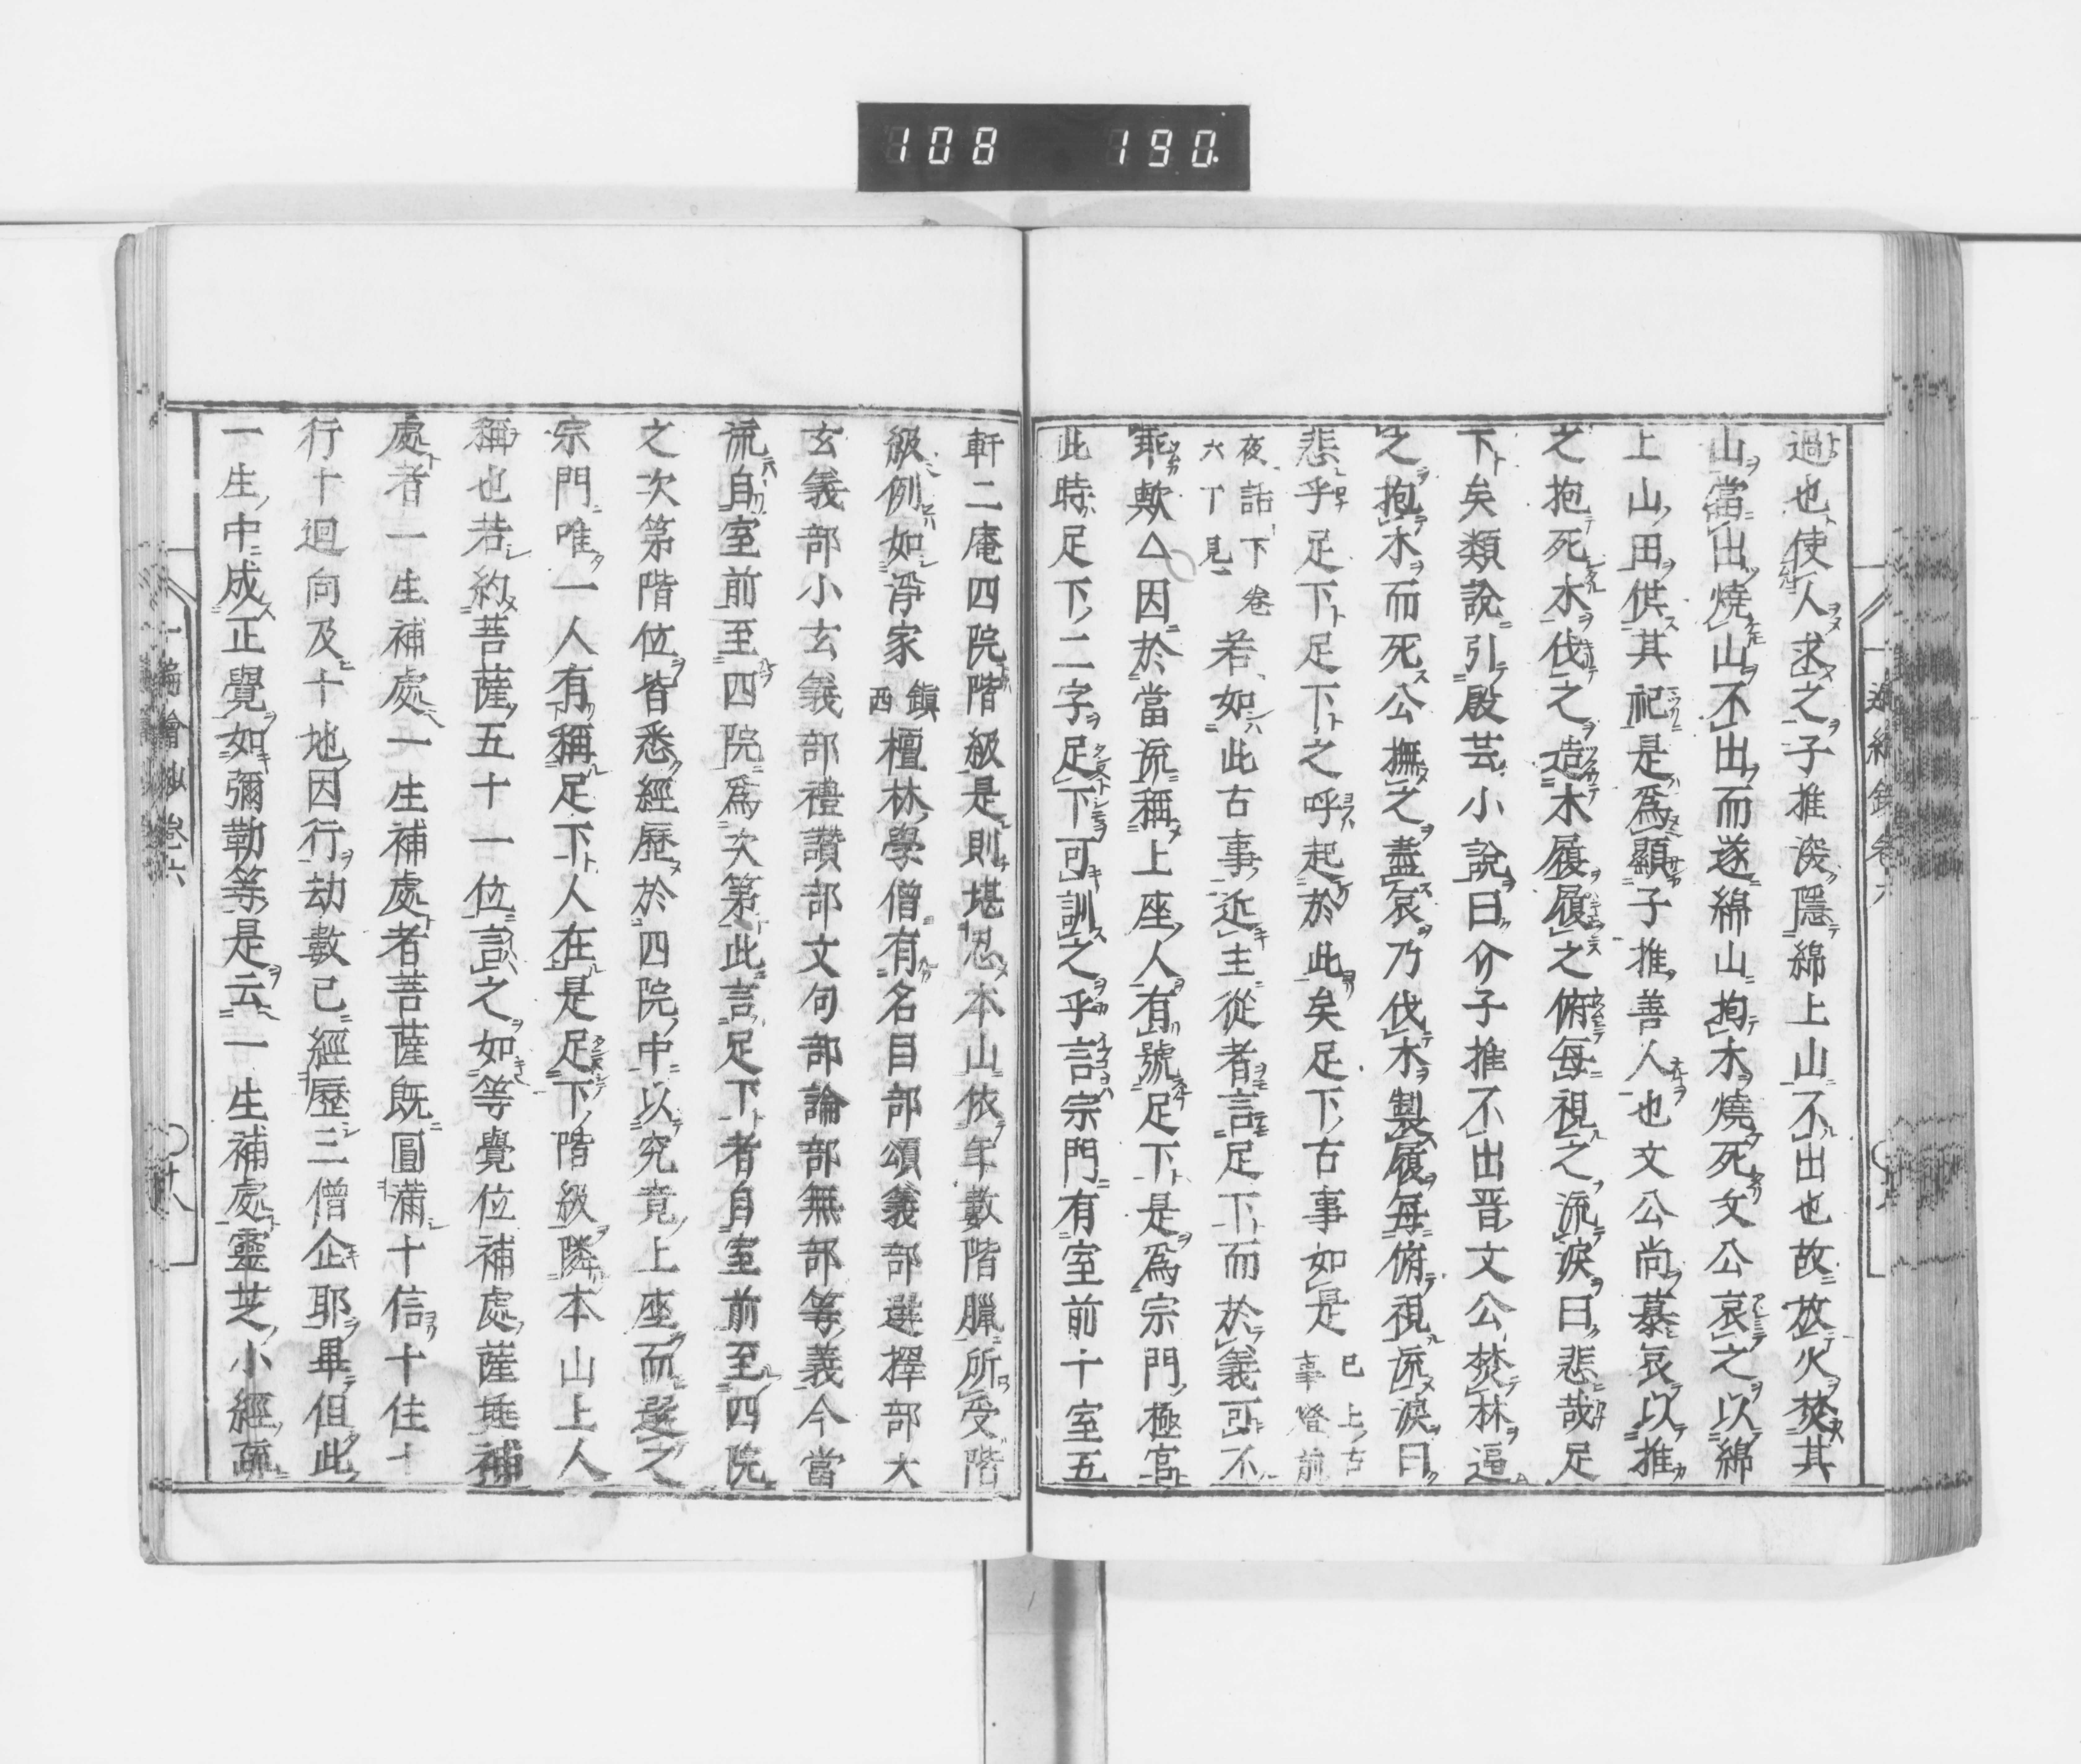 108 190
過也使人求之子推深隱綿上山不出也故放火焚其
山當出燒山不出而遂綿山抱木燒死文公哀之以綿
上山田供其祀是爲顯子推善人也文公尚慕哀以推
之抱死木伐之造木履履之俯每視之流淚曰悲哉足
下矣類說引殷芸小說曰介子推不出晋文公焚林逼
之抱木而死公撫之盡哀乃伐木製履每俯視流淚曰
悲乎足下足下之呼起於此矣足下古事如是 已上古
事燈前
夜話下卷
六丁見 若如此古事近主從者言足下而於義可不
乖歟△因於當流稱上座人有號足下是爲宗門極官
此時足下二字足下可訓之乎言宗門有室前十室五
軒二庵四院階級是則堪忍本山依年數階臘所受階
級例如淨家 鎭
西 檀林學僧有名目部頌義部選擇部大
玄義部小玄義部禮讚部文句部論部無部等義今當
流自室前至四院爲次第此言足下者自室前至四院
之次第階位皆悉經歷於四院中以究竟上座而選之
宗門唯一人有稱足下人在是足下階級隣本山上人
稱也若約菩薩五十一位言之如等覺位補處薩埵補
處者一生補處一生補處者菩薩既圓滿十信十住十
行十迴向及十地因行劫數已經歷三僧企耶畢但此
一生中成正覺如彌勒等是云一生補處靈芝小經疏
卷六